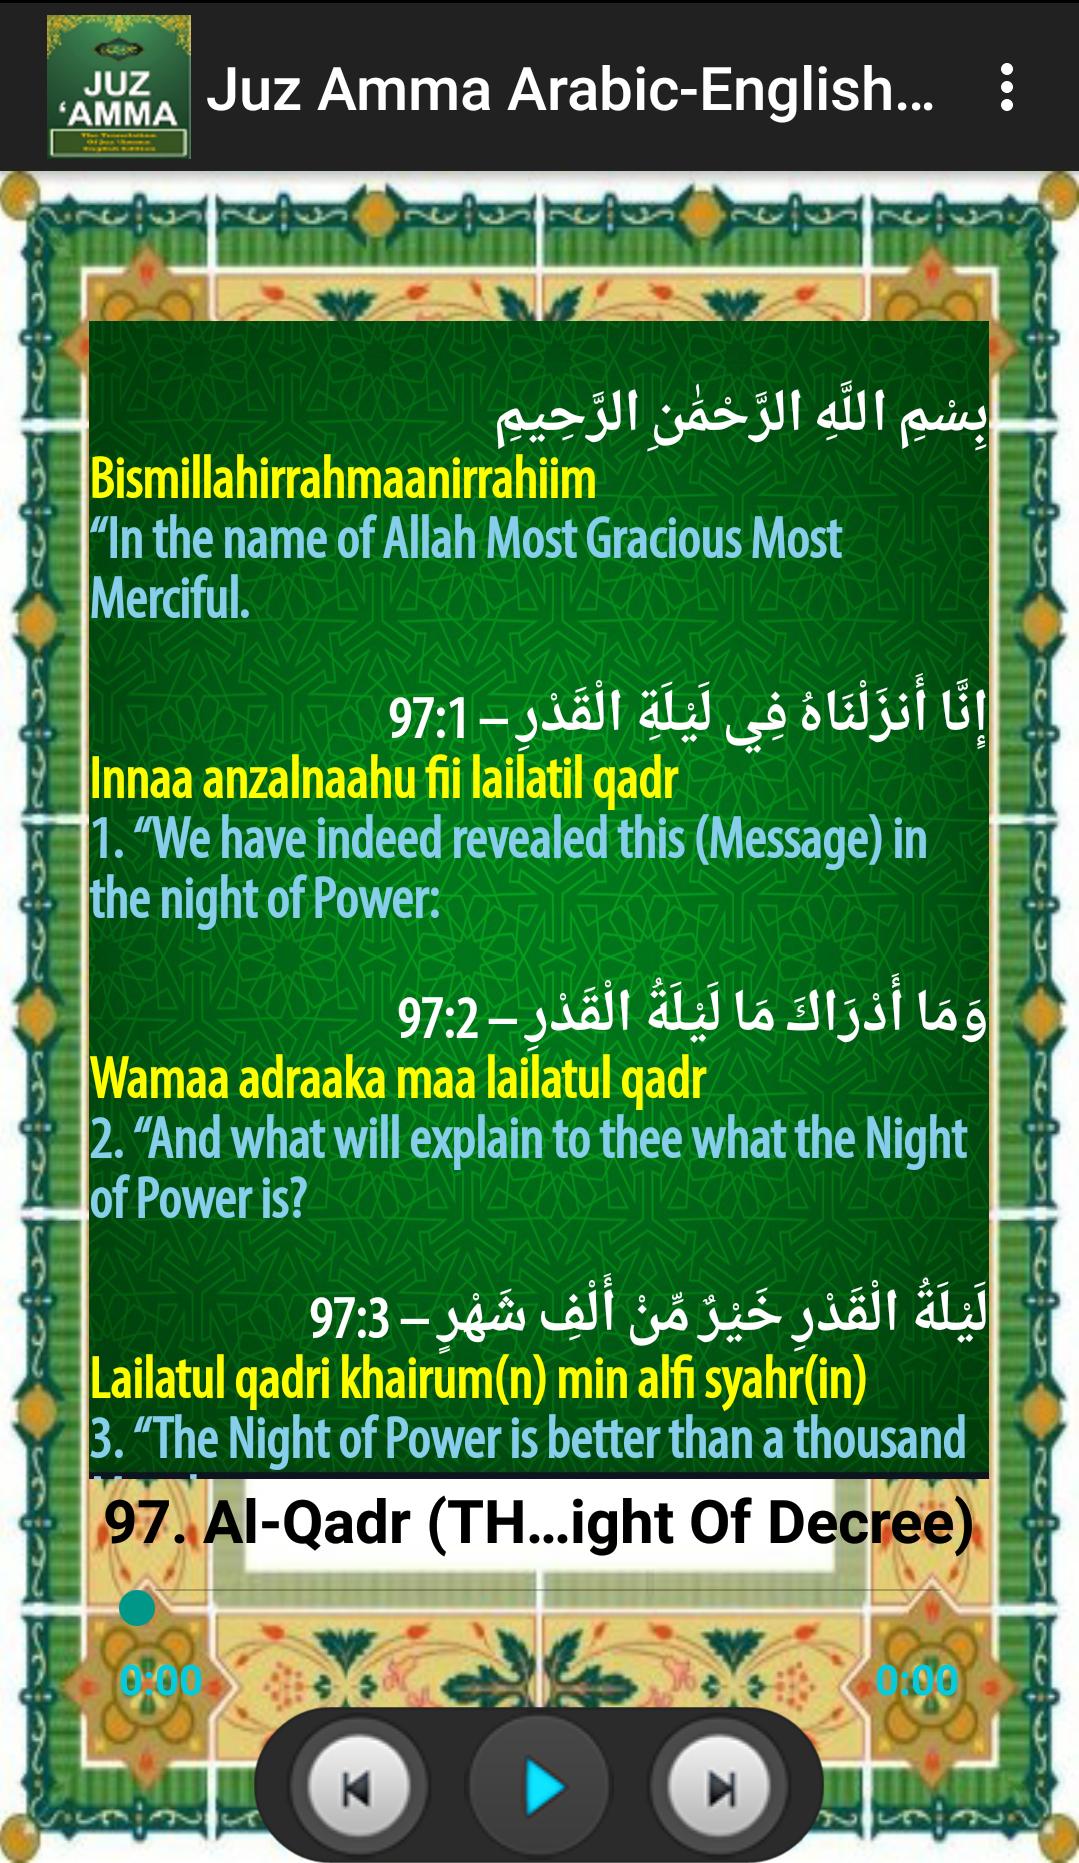 JUZ
‘AMMA
The Translation
Of Juz ‘Amma
English Edition
Juz Amma Arabic-English...
بِسْمِ اللَّهِ الرَّحْمَٰنِ الرَّحِيمِ
Bismillahirrahmaanirrahiim
“In the name of Allah Most Gracious Most
Merciful.
إِنَّا أَنزَلْنَاهُ فِي لَيْلَةِ الْقَدْرِ – 97:1
Innaa anzalnaahu fii lailatil qadr
1. “We have indeed revealed this (Message) in
the night of Power:
وَمَا أَدْرَاكَ مَا لَيْلَةُ الْقَدْرِ – 97:2
Wamaa adraaka maa lailatul qadr
2. “And what will explain to thee what the Night
of Power is?
لَيْلَةُ الْقَدْرِ خَيْرٌ مِّنْ أَلْفِ شَهْرٍ – 97:3
Lailatul qadri khairum(n) min alfi syahr(in)
3. “The Night of Power is better than a thousand
97. Al-Qadr (TH...ight Of Decree)
0:00
0:00